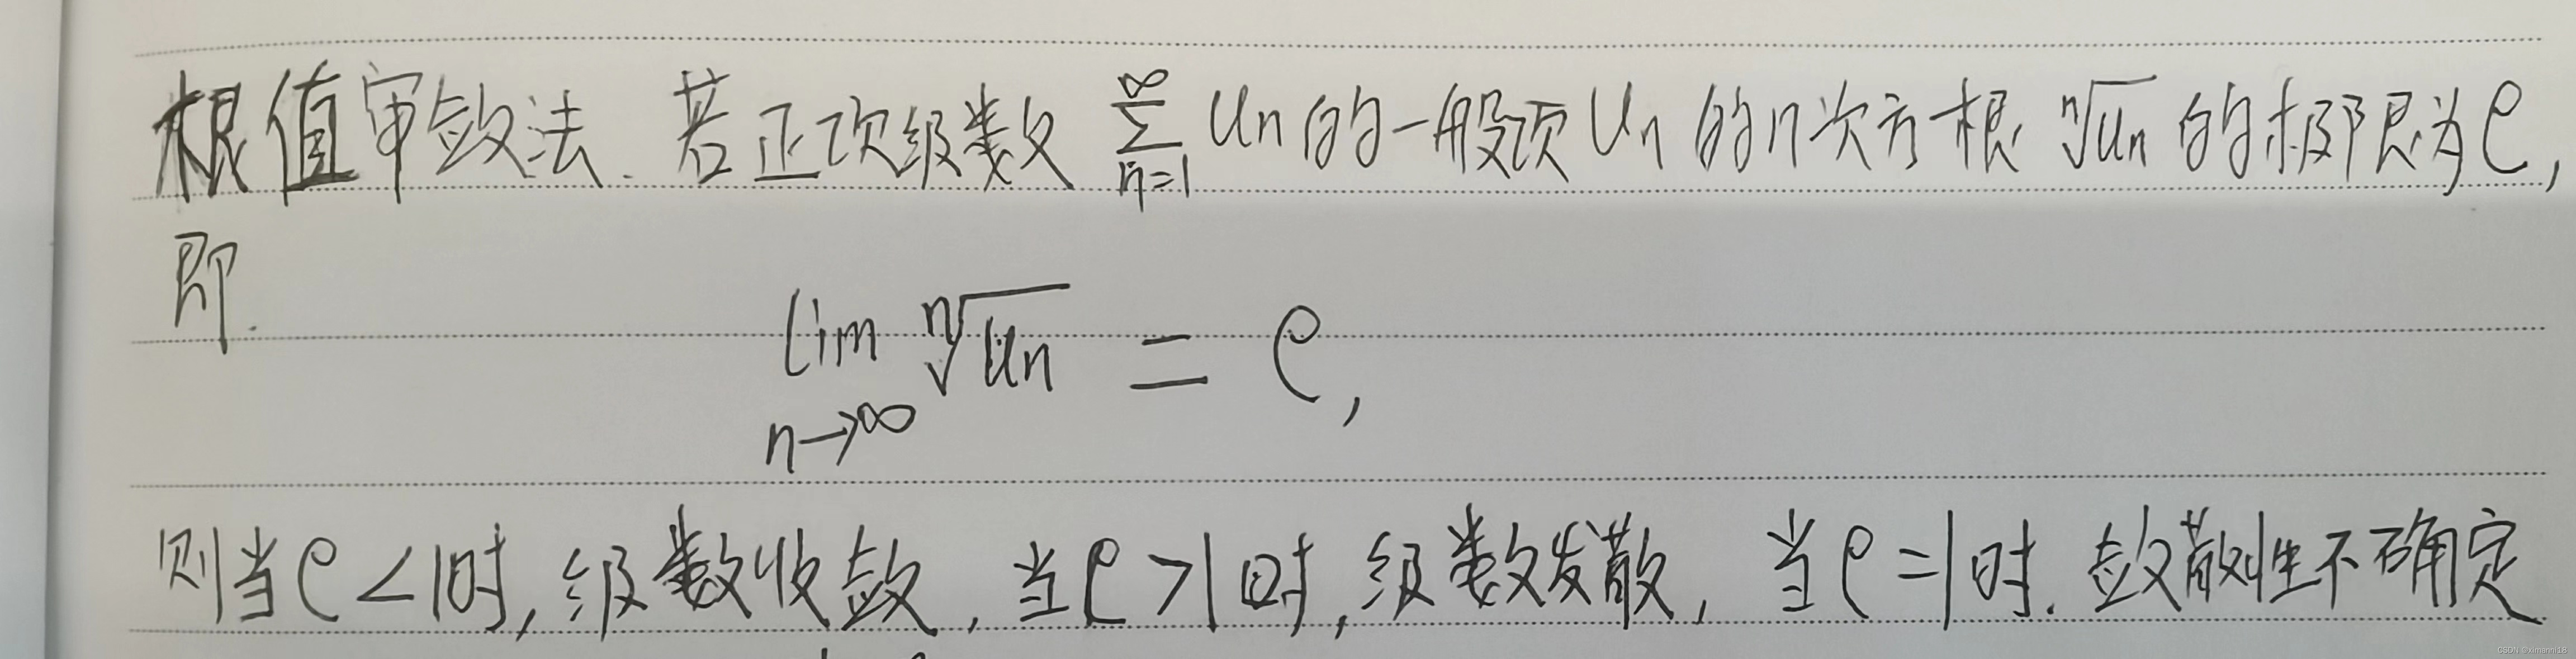 根值审敛法. 若正项级数 $\sum_{n=1}^{\infty} u_n$ 的一般项 $u_n$ 的n次方根 $\sqrt[n]{u_n}$ 的极限为ρ,
即.
$\lim_{n\to\infty} \sqrt[n]{u_n} = ρ$,
则当ρ<1时, 级数收敛, 当ρ>1时, 级数发散, 当ρ=1时. 敛散性不确定.